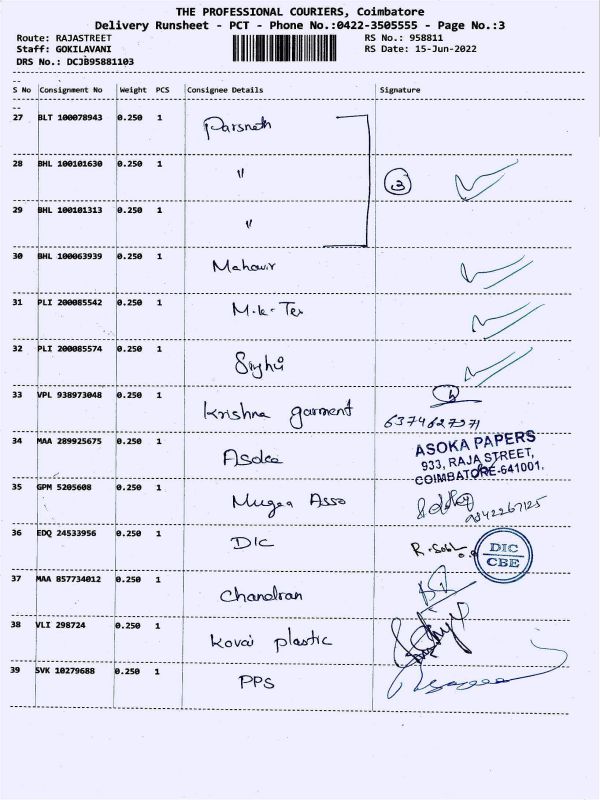 THE PROFESSIONAL COURIERS, Coimbatore
Delivery Runsheet - PCT - Phone No.:0422-3505555 - Page No.:3
Route: RAJASTREET RS No.: 958811
Staff: GOKILAVANI RS Date: 15-Jun-2022
DRS No.: DCJB95881103
S No Consignment No Weight PCS Consignee Details Signature
27 BLT 100078943 0.250 1 Parsneth
28 BHL 100101630 0.250 1 〃 3
29 BHL 100101313 0.250 1 〃
30 BHL 100063939 0.250 1 Mahavir
31 PLI 200085542 0.250 1 M.k. Tex
32 PLI 200085574 0.250 1
33 VPL 938973048 0.250 1 Krishna garment
34 MAA 289925675 0.250 1 ASOKA PAPERS
933, RAJA STREET,
COIMBATORE-641001.
35 GPM 5205608 0.250 1 Mugea Asso
36 EDQ 24533956 0.250 1 DIC DIC
CBE
37 MAA 857734012 0.250 1 Chandran
38 VLI 298724 0.250 1 Kovai plastic
39 SVK 10279688 0.250 1 PPS